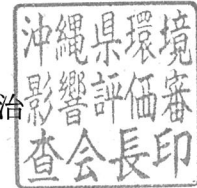 治
沖縄県環境
影響評価審
査会長印